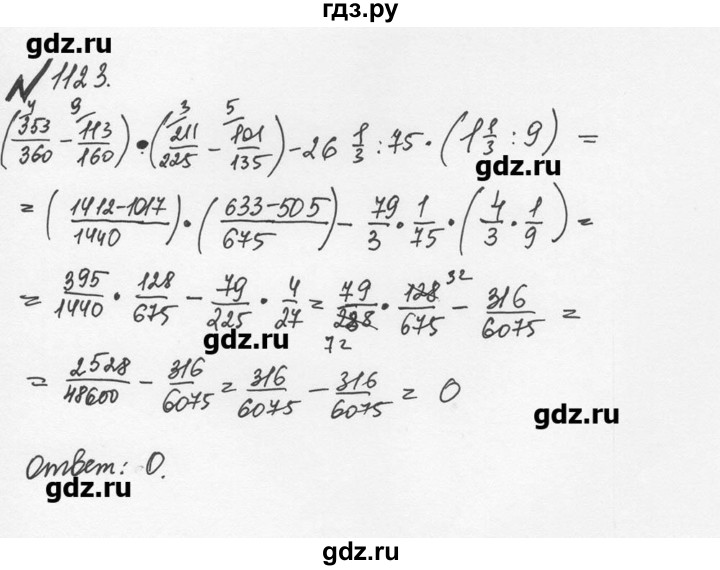 гдз.ру
gdz.ru
№ 1123.
(353/360 − 113/160) · (211/225 − 101/135) − 26 1/3 : 75 · (1 1/3 : 9) =
4 9 3 5
gdz.ru
= ((1412−1017)/1440) · ((633−505)/675) − 79/3 · 1/75 · (4/3 · 1/9) =
= 395/1440 · 128/675 − 79/225 · 4/27 = 79/288 · 128/675 − 316/6075 =
32
72
gdz.ru
= 2528/48600 − 316/6075 = 316/6075 − 316/6075 = 0
gdz.ru
Ответ: 0.
gdz.ru
gdz.ru